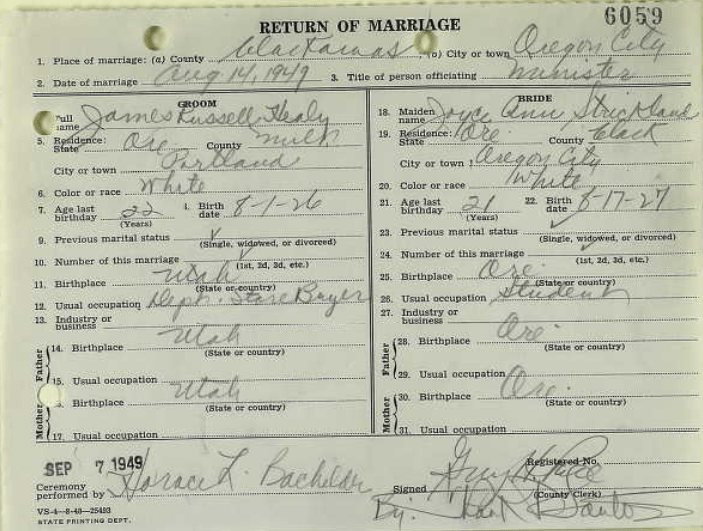 6059
RETURN OF MARRIAGE
1. Place of marriage: (a) County Clackamas (b) City or town Oregon City
2. Date of marriage Aug 14, 1949 3. Title of person officiating Minister
GROOM
Full name James Russell Healy
5. Residence: State Ore County Mult
City or town Portland
6. Color or race White
7. Age last birthday 22 (Years) 8. Birth date 8-1-26
9. Previous marital status ✓ (Single, widowed, or divorced)
10. Number of this marriage ✓ (1st, 2d, 3d, etc.)
11. Birthplace Utah (State or country)
12. Usual occupation Dept. Store Buyer
13. Industry or business
Father
14. Birthplace Utah (State or country)
15. Usual occupation
Mother
16. Birthplace Utah (State or country)
17. Usual occupation
BRIDE
18. Maiden name Joyce Ann Strickland
19. Residence: State Ore County Clack
City or town Oregon City
20. Color or race White
21. Age last birthday 21 (Years) 22. Birth date 8-17-27
23. Previous marital status ✓ (Single, widowed, or divorced)
24. Number of this marriage ✓ (1st, 2d, 3d, etc.)
25. Birthplace Ore. (State or country)
26. Usual occupation Student
27. Industry or business
Father
28. Birthplace Ore. (State or country)
29. Usual occupation
Mother
30. Birthplace Ore. (State or country)
31. Usual occupation
SEP 7 1949
Registered No.
Ceremony performed by Horace L. Bachelder
Signed Guy H. Pace
(County Clerk)
By:
VS-4—8-48—25493
STATE PRINTING DEPT.